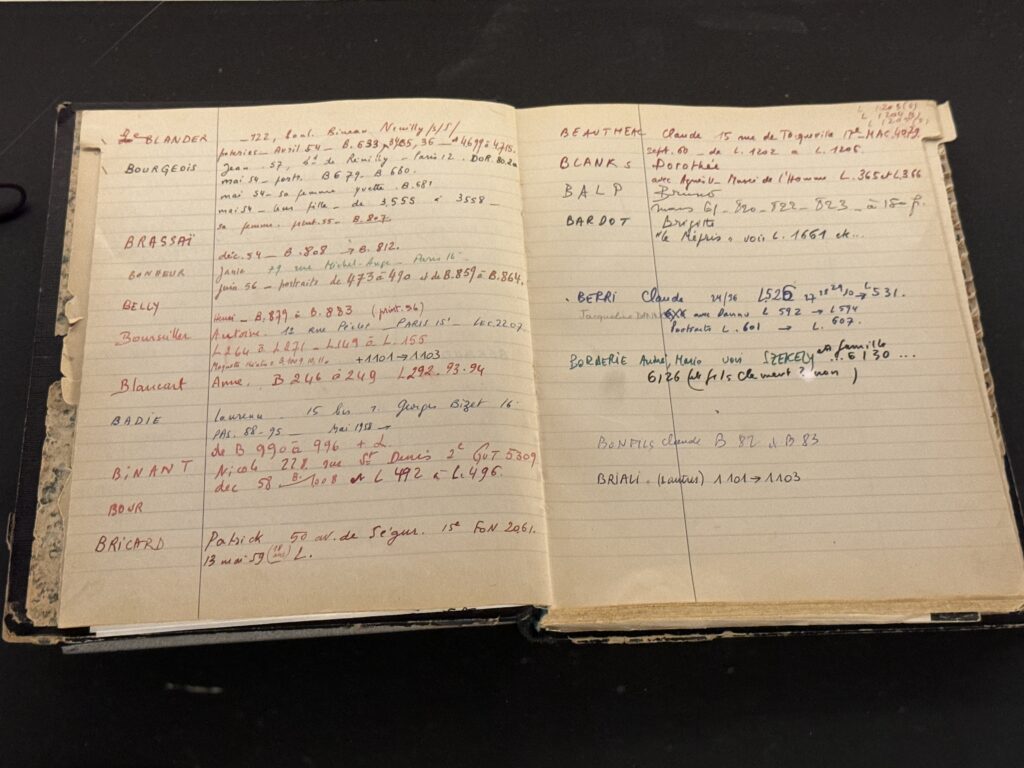 Le BLANDER _122, boul. Bineau Neuilly /s/S/
poteries_ Avril 54_ B.633, 36_
BOURGEOIS Jean 57, bd de Reuilly_ Paris 12. DOR.80.
mai 54_ portr. B 679_ B.660.
mai 54_ sa femme yvette_ B.681
mai 54_ leur fille_ de 3,555 à 3558_
sa femme. 55_ B.807
BRASSAÏ déc.54_ B.808 → B.812.
BONHEUR 79 rue Michel-Ange_ Paris 16
juin 56_ portraits de 473 à 490 et de B.859 à B.864.
BELLY Henri_ B.879 à B.883 (print.56)
Bourseiller Antoine. 12 rue Péclet_ PARIS 15e_ LEC.22.07.
L264 à L271_ L149 à L.155
+1101→1103
Blancart Anne. B 246 à 249 L292.93.94
BADIE Laurence. 15 bis r. Georges Bizet 16
PAS.58-95_ Mai 1958_→
de B 990 à 996 + L.
BINANT Nicole 228 rue St Denis 2e GUT 5309
dec 58_ B.1008 et L 492 à L.496.
BOUR
BRICARD Patrick 50 av. de Ségur. 15e FON 2061.
13 mai 59 L.
L 1203(6)
L 1204
BEAUTHEAC Claude 15 rue de Tocqueville 17e MAC.
sept.60_ de L.1202 à L.1206.
BLANKS Dorothée
avec Agnès V_ Musée de l'Homme L.365 et L.366
BALP Bruno
mars 61_820_822_823_
BARDOT Brigitte
"le Mépris" voir L.1661 et...
BERRI Claude 24/26 L526 27 28 29 30 → L531.
Jacqueline avec Danau L 592 → L594
Portraits L.601 → L.607.
BORDERIE André, Mario voir SZEKELY et famille
6126 (et fils Clement ? non) ..6130...
BONFILS Claude B 82 et B 83
BRIALI. (& autres) 1101→1103